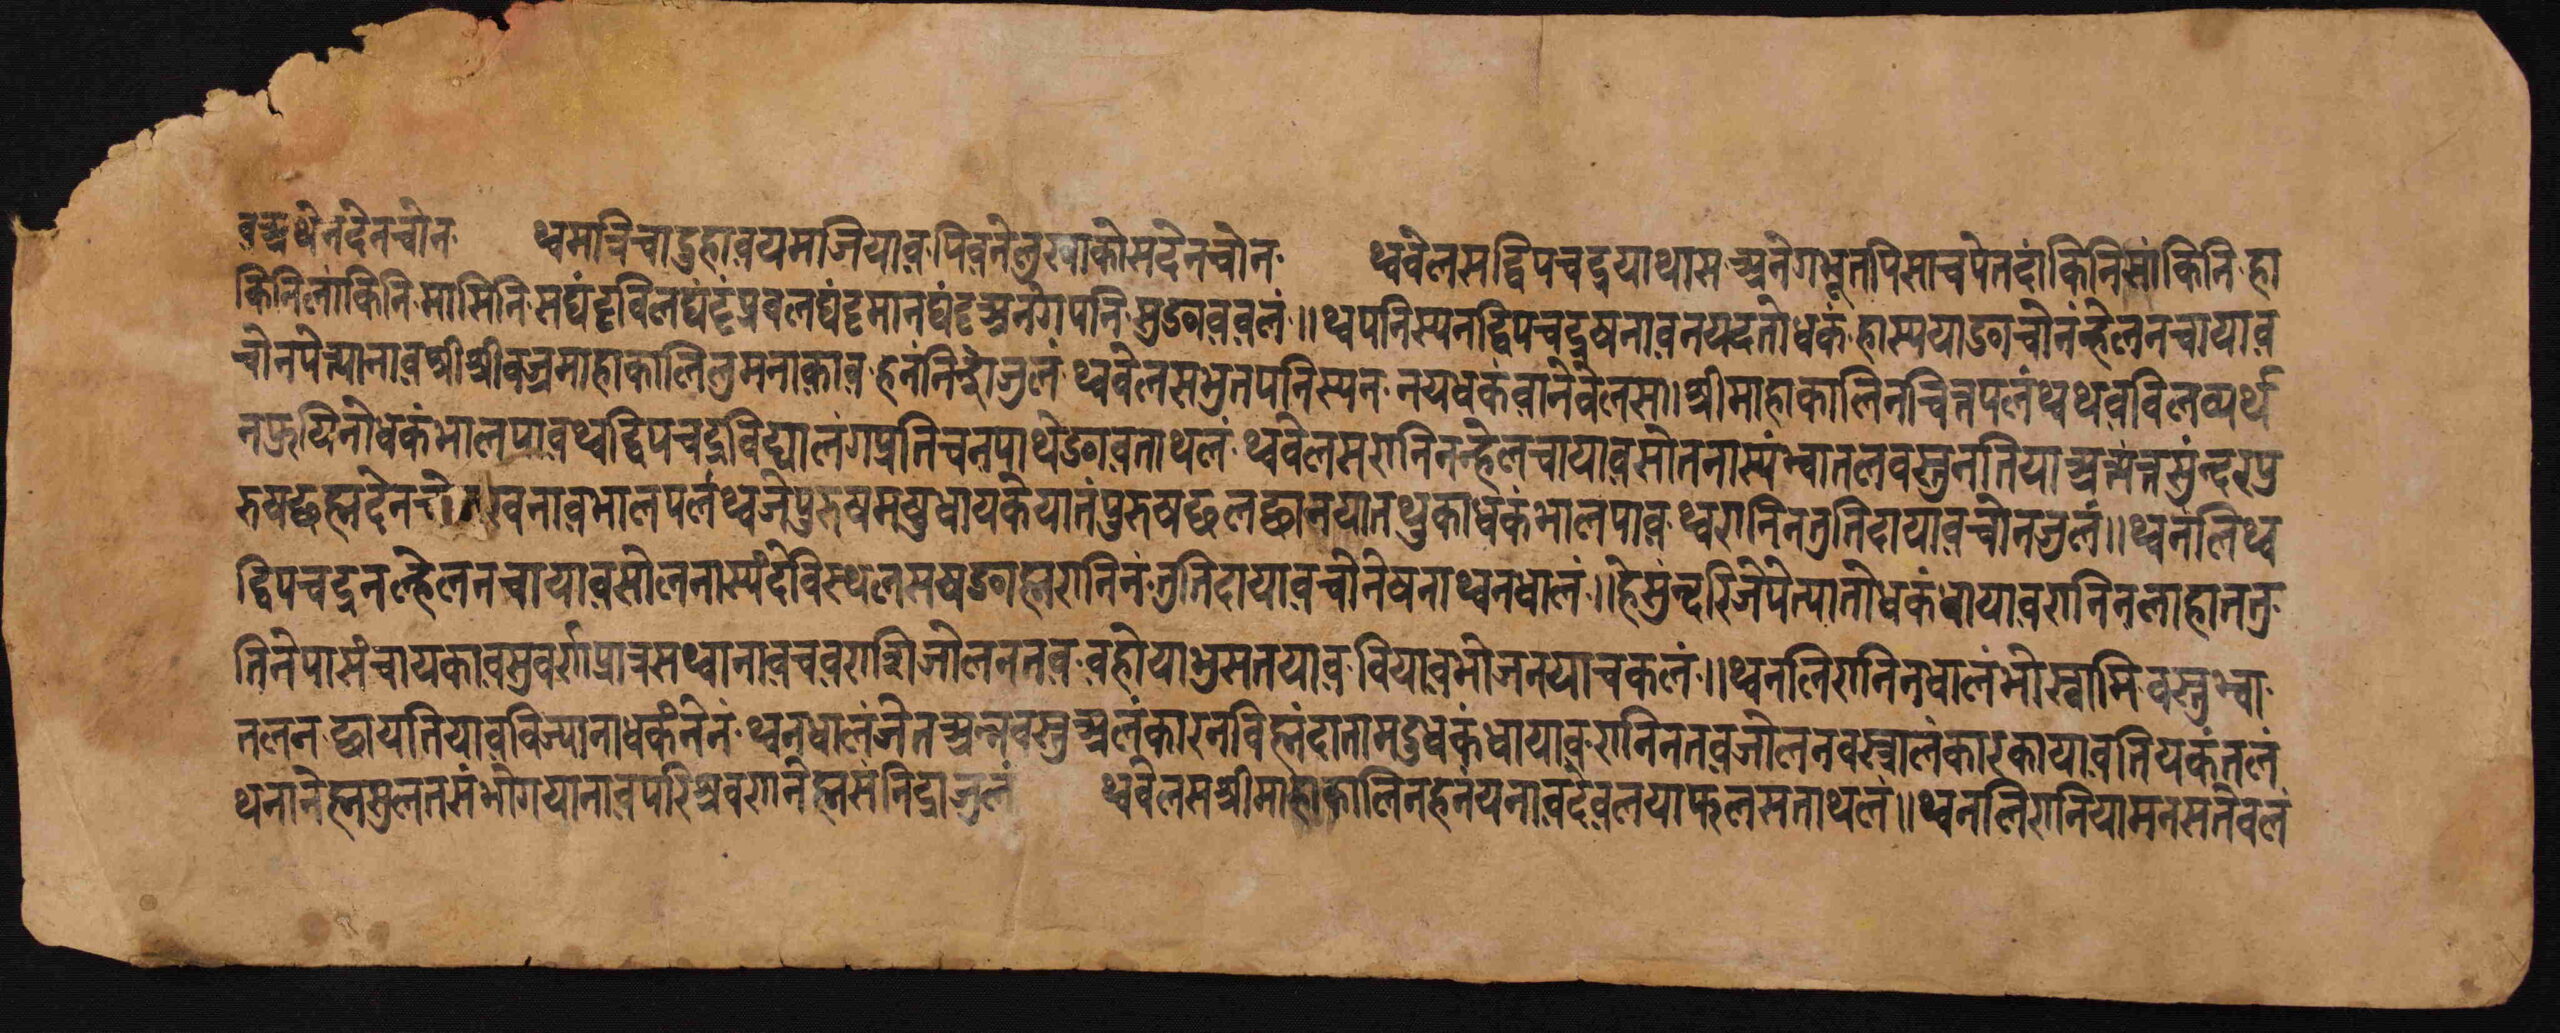 वञ्रथेनंदेनचोन थ्वमात्रिचादुहावयमजियाव पिवनेलुखाकोसदेनचोन थ्ववेलसद्विपचद्रयाथास अनेगभूतपिसाचपेतदांकिनिसांकिनि हा
किनिलाकिनि मासिनि सद्यंदृविलद्यंदृंप्रवलद्यंदृमानद्यंदृअनंगपनि मुङाववलं ॥ थ्वपनिस्यनद्विपचद्रुषनावनयदतोधकं हास्ययाङाचोनंन्हेलनचायाव
चोनपेत्यानावश्रीश्रीवज्रमाहाकालिलुमनाकाव हनंनिन्द्राजुलं थ्ववेलसभुतपनिस्यन नयधकंवानेवेलस॥श्रीमाहाकालिनचित्रपलंथ्वथवविलव्यर्थ
नफ्रुयिनोधकंभालपावथ्वद्विपचद्रविद्यालंगप्रतिचनपाथेङावताथलं थ्ववेलसरानिनन्हेलचायावसोतनास्यंभ्वातलवस्त्रनतियाअत्यंन्नसुंन्दरपु
रुषछह्मदेन खनावभालपलंथ्वजेपुरुषमषुधायकेयातंपुरुषछलछानयानथुकाधकंभालपाव थ्वरानिनतुतिदायावचोनजुलं॥थ्वनंलिथ्व
द्विपचद्रनल्हेलनचायावसोलनास्यंदेविस्थलसषङाह्मरानिनंतुतिदायावचोनेषनाथ्वनधालं॥हेसुंन्दरिजेपेत्यातोधकंधायावरानिनलाहातनु
तिनेपासंचायकावसुवर्णप्रात्रसथ्वानावचवराशिजोलननव वहोयाभुसतयाव वियावभोजनयाचकलं॥थ्वनलिरानिनधालंभोस्वामि वस्त्रभ्वा
तलन छायतियावविज्यानाधकंनेनं थ्वनधालंजेतअन्नवस्त्रअलंकारनविह्मंदातामदुधकंधायाव रानिनतवजोलनवस्त्रालंकारकायावतियकंतलं
थनानेह्मसुलतसंभोगयानावपरिश्रवरानेह्मसंनिद्राजुलं थ्ववेलसश्रीमाहाकालिनहनंयनावदेवलयाफलसताथलं॥थ्वनलिरानियामनसतेवलं